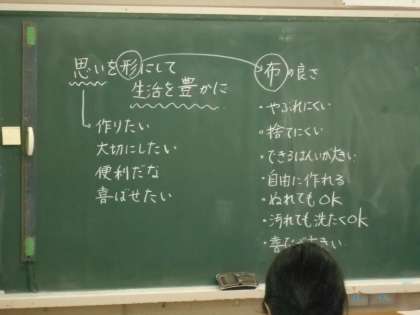 思いを形にして
生活を豊かに
作りたい
大切にしたい
便利だな
喜ばせたい
布の良さ
・やぶれにくい
・捨てにくい
・できるはんいが大きい
・自由に作れる
・ぬれてもOK
・汚れても洗たくOK